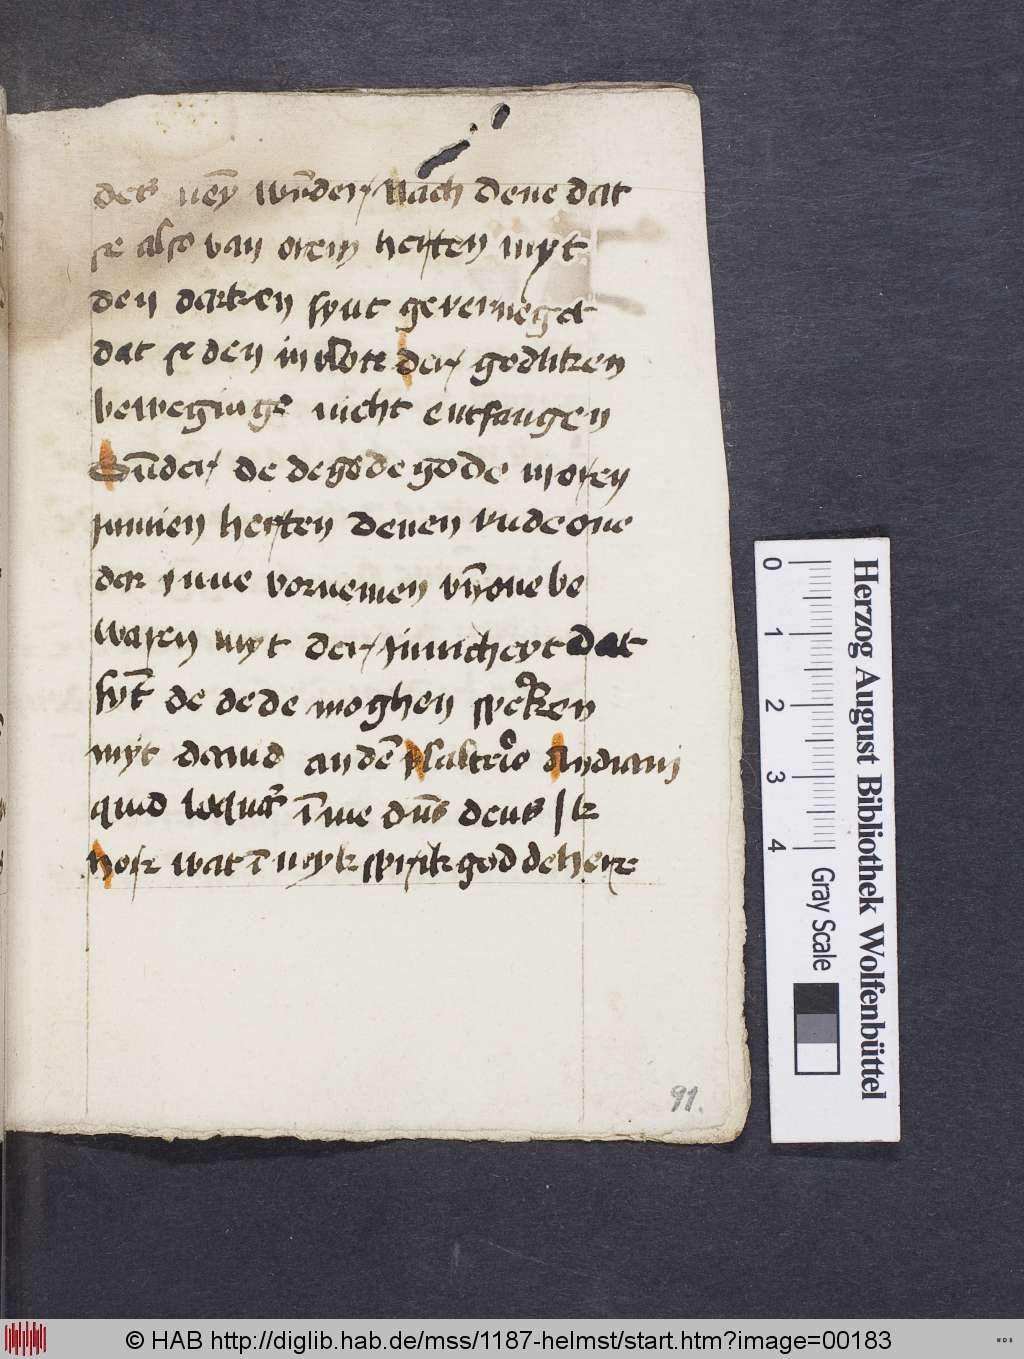 des neȳ wūder Nach dene dat
se also van orem herten myt
den darken synt geverneget
dat se den invlote der godliken
beweginge nicht entfangen
Sūder de de gode gode in oren
jnnien herten denen vnde one
dar jnne vornemen vn̄ one be
waren myt der jnnicheyt dat
synt de dede moghen speken
myt dauid an dē psalterio Audiam
quid loquat' ī me dn̄s deus Ik
hore wat ī myk sprikt god de here
91.
0 1 2 3 4
Gray Scale
Herzog August Bibliothek Wolfenbüttel
© HAB http://diglib.hab.de/mss/1187-helmst/start.htm?image=00183
WDB